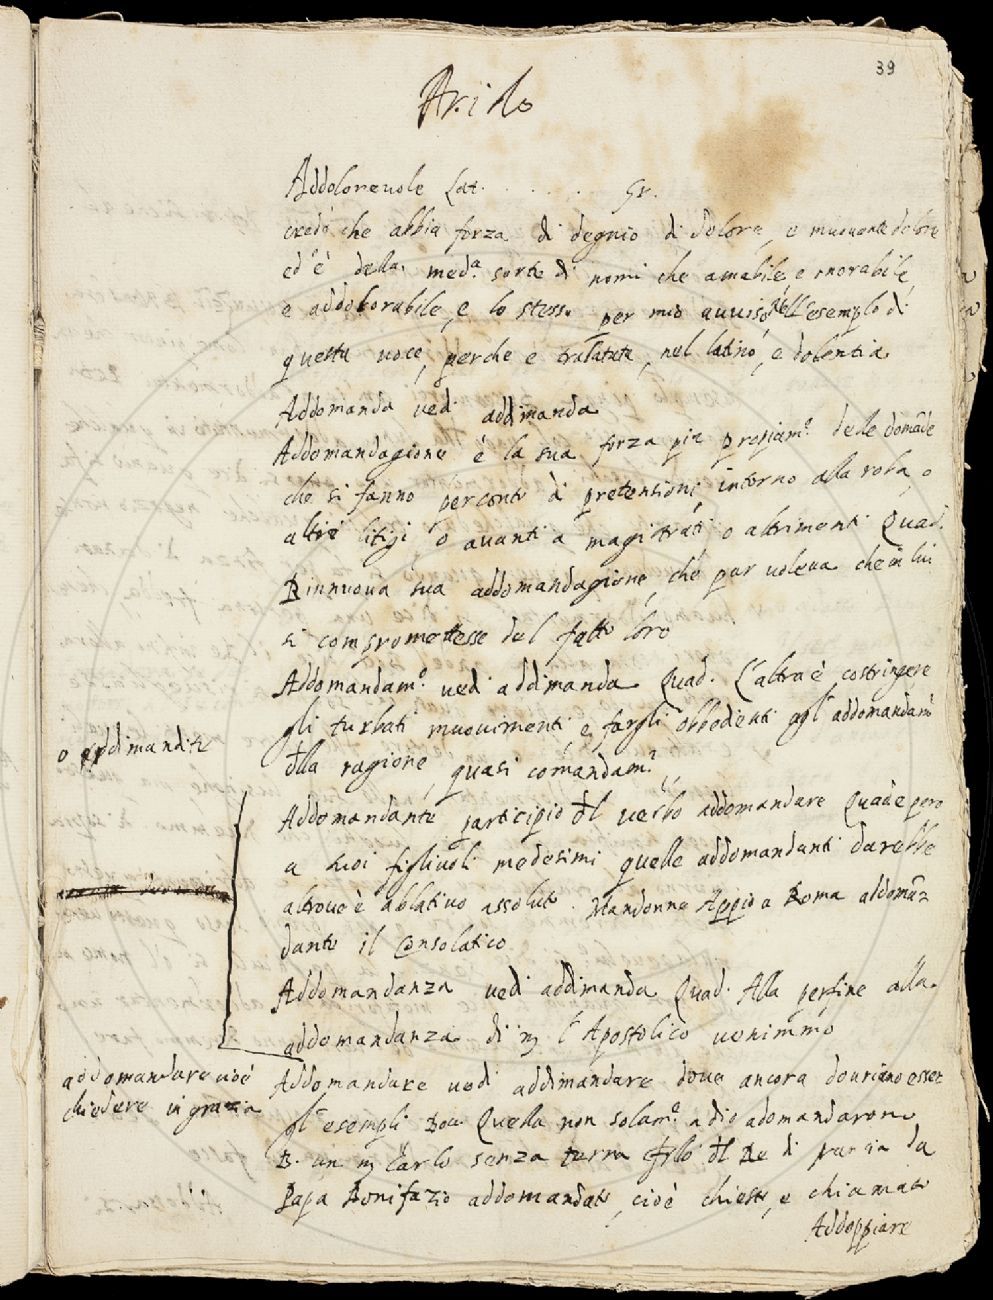 39
Arido
Addolorevole Lat. . . . . . Gr.
credo che abbia forza di degnio di dolore, e muovente dolore
ed è della med.a sorte di nomi che amabile, e onorabile,
e addolorabile, e lo stesso per mio avviso, dell'esemplo di
questa voce, perche è tralatata, nel latino, è dolentia
Addomanda vedi addimanda
Addomandagione è la sua forza più propiam.e delle domāde
che si fanno per conto di pretensioni intorno alla roba, o
altri litigi o avanti a magistrati o altrimenti Quad.
Rinnuova sua addomandagione, che pur voleva che in lui
si compromettesse del fatto loro
Addomandam.o vedi addimanda Quad. L'altra è costringere
gli turbati muovimenti, e fargli obbedienti agl'addomandam.i
o addimandite
dlla ragione, quasi comandam.i
Addomandante, participio dl verbo addomandare Quad e pero
a suoi figliuoli medesimi quelle addomandanti darebbe
altrove è ablativo assoluto. Mandonne Appio a Roma addomā=
dante il Consolatico
Addomandanza vedi addimanda Quad. Alla perfine alla
addomandanza di m l'Apostolico venimmo
addomandare cioè
chiedere in grazia
Addomandare vedi addimandare dove ancora dovriano esser
gl'esempli Boc. Quella non solam.e a dio adomandarono
B. un m Carlo senza terra dl Re di Francia da
Papa Bonifazio addomandato, cioè chiesto, e chiamato
Addoppiare